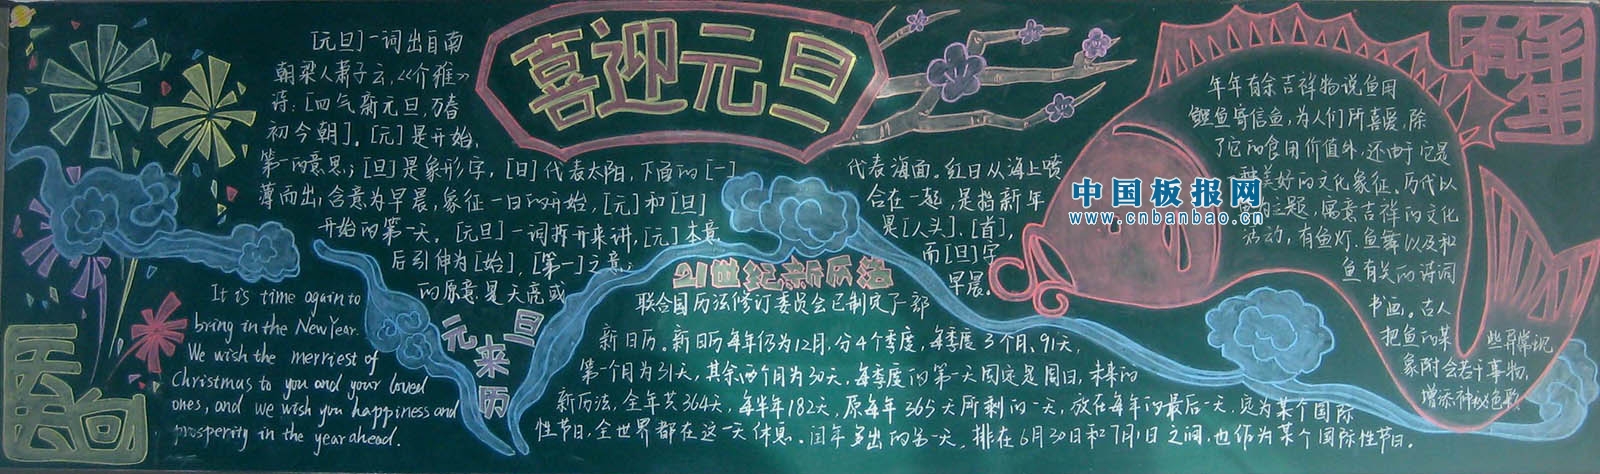 喜迎元旦
[元旦]一词出自南
朝梁人萧子云,《介雅》
诗:[四气新元旦,万春
初今朝]。[元]是开始,
第一的意思;[旦]是象形字,[日]代表太阳,下面的[一]
代表海面。红日从海上喷
薄而出,含意为早晨,象征一日的开始,[元]和[旦]
合在一起,是指新年
开始的第一天。[元旦]一词拆开来讲,[元]本意
是[人头]、[首],
后引伸为[始],[第一]之意;
而[旦]字
的原意是天亮或
早晨。
元旦来历
It is time again to
bring in the New Year.
We wish the merriest of
Christmas to you and your loved
ones, and we wish you happiness and
prosperity in the year ahead.
21世纪新历法
联合国历法修订委员会已制定了一部
新日历。新日历每年仍为12月,分4个季度,每季度3个月、91天,
第一个月为31天,其余两个月为30天,每季度的第一天固定是周日,未来的
新历法,全年共364天,每半年182天,原每年365天所剩的一天,放在每年的最后一天,定为某个国际
性节日,全世界都在这一天休息。闰年多出的另一天,排在6月30日和7月1日之间,也作为某个国际性节日。
年年有余吉祥物说鱼用
鲤鱼寄信鱼,为人们所喜爱,除
了它的食用价值外,还由于它是
美好的文化象征。历代以
主题,寓意吉祥的文化
活动,有鱼灯、鱼舞以及和
鱼有关的诗词
书画。古人
把鱼的某
些异常现
象附会若干事物,
增添神秘色彩
中国板报网
www.cnbanbao.cn